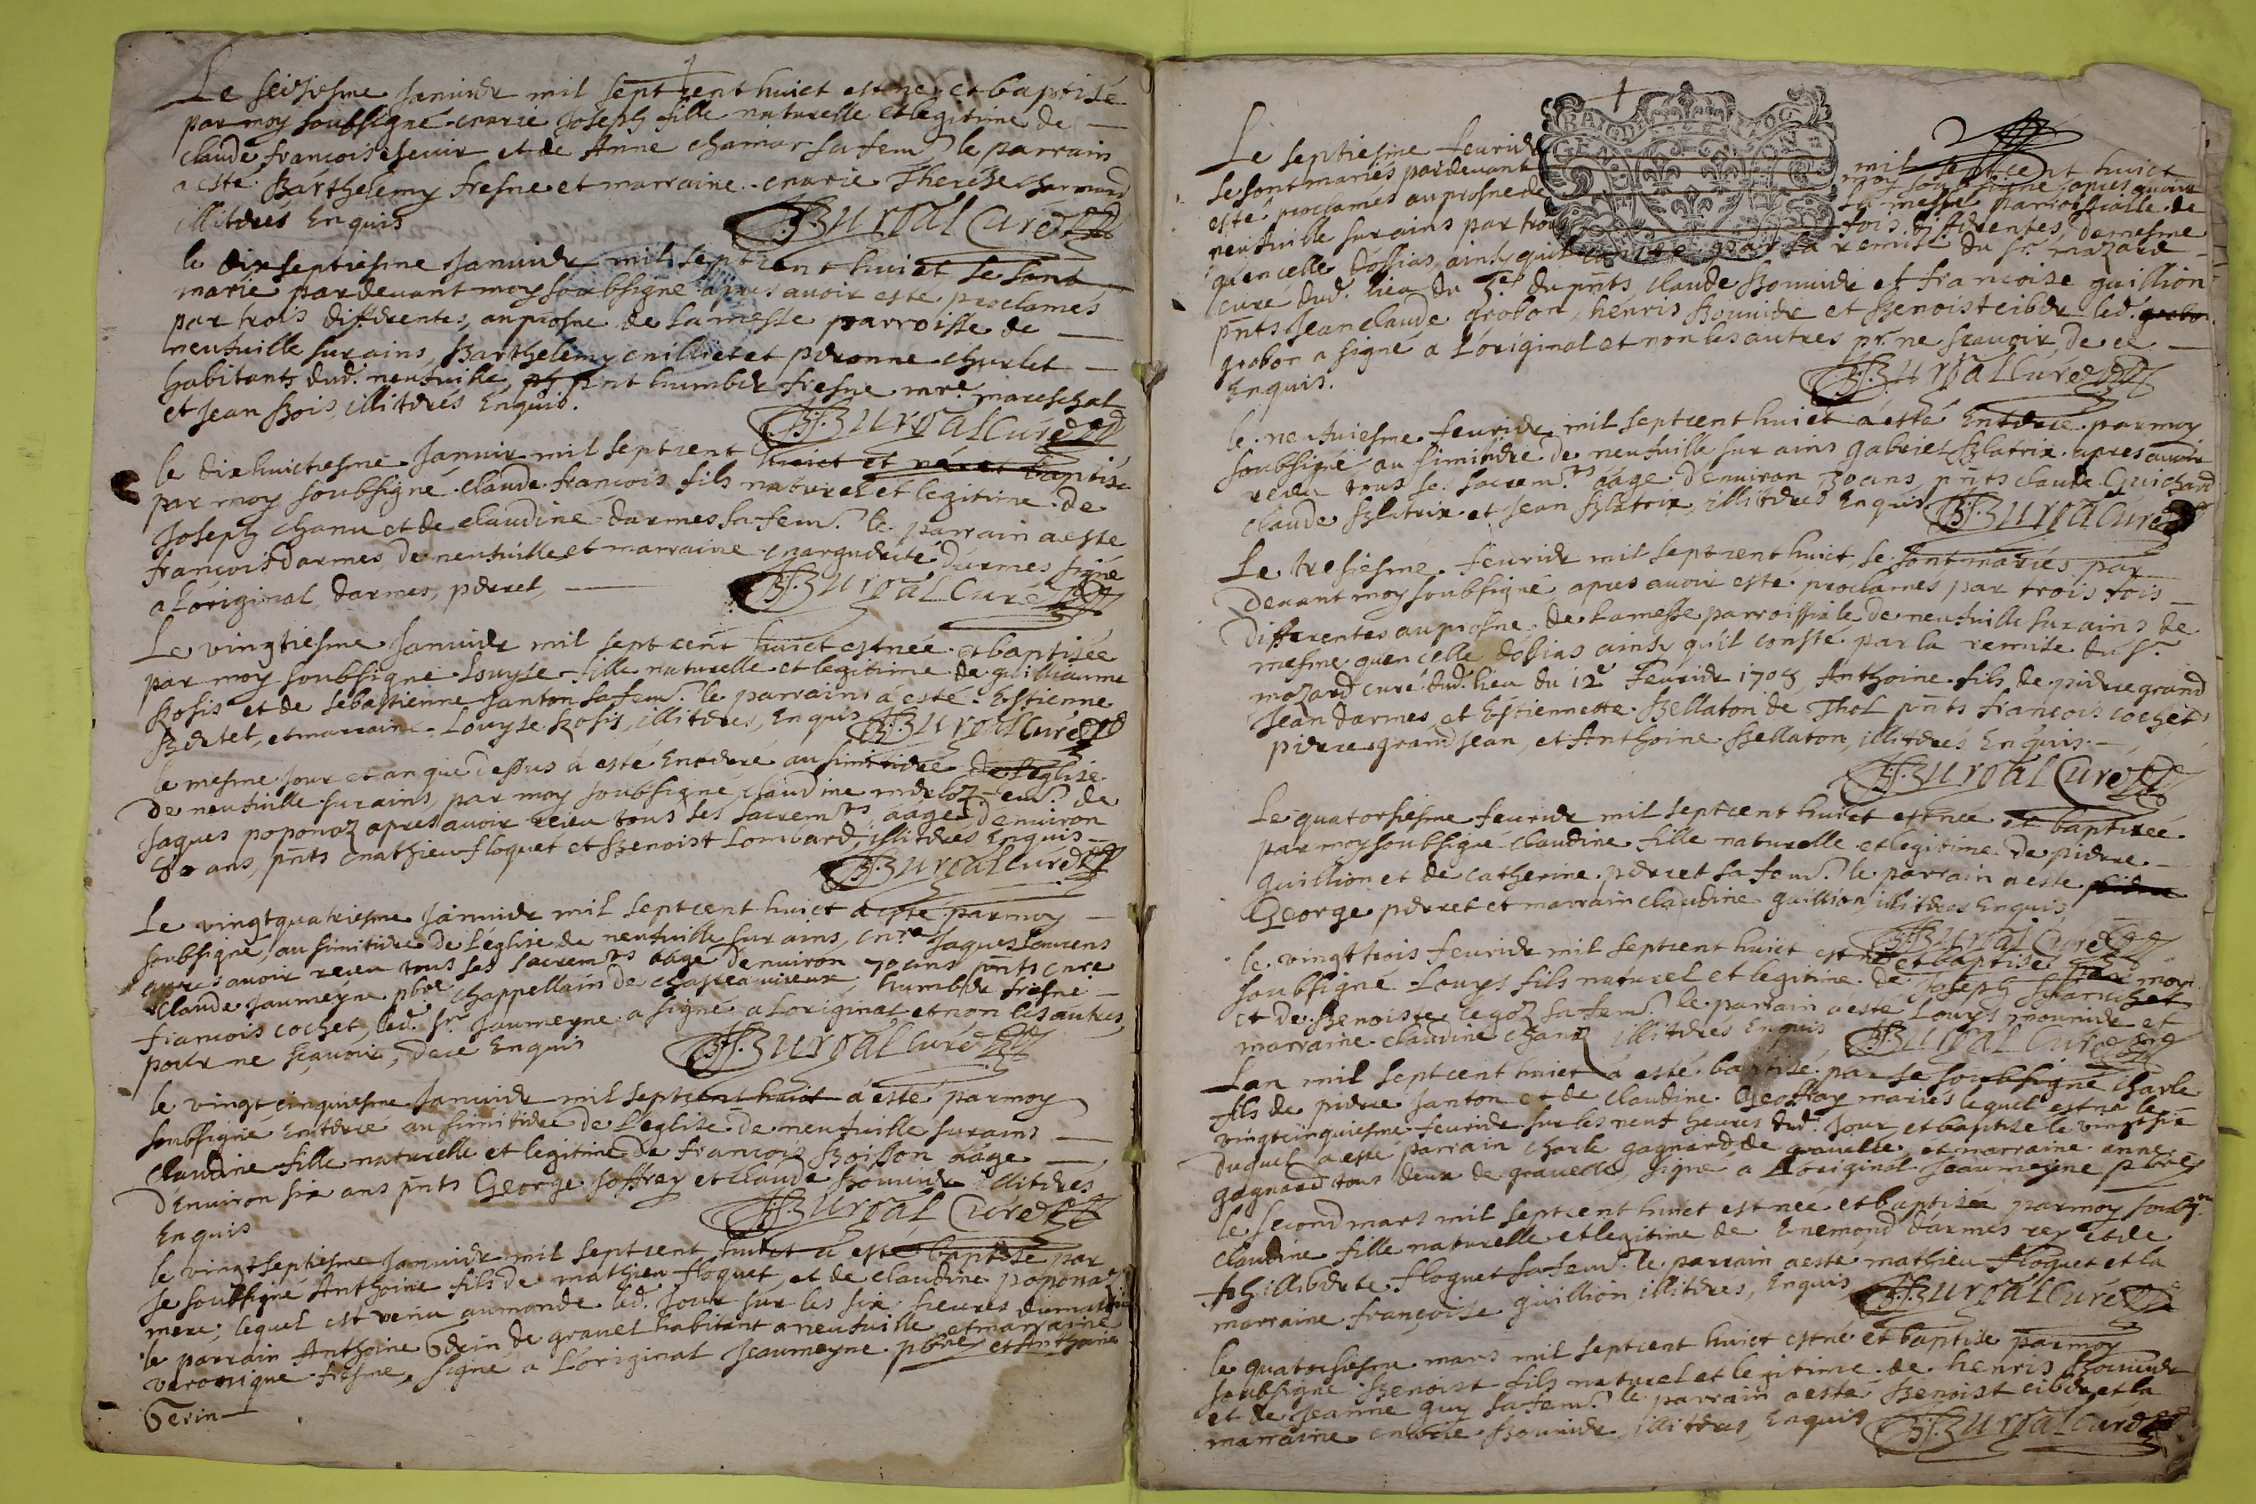 Le seiziesme Januier mil sept cent huict est née et baptisé
par moy soubsigné marie Joseph fille naturelle et legitime de
claude francois et de Anne chamar sa fem.e le parrain
a esté Barthelemy fresne et marraine marie Therese
illiteres Enquis
Burgal Curé
le dixseptiesme Januier mil sept cent huict, se sont
marie pardeuant moy soubsigné apres auoir esté proclamés
par trois differentes, au prosne de la messe parroisse de
neufuille sur ains, Barthelemy millieret et pieronne churlet
habitants dud. neufuille, pnt humber fresne mre mareschal
et Jean Bois, illiteres Enquis.
Burgal Curé
le dixhuictiesme Januier mil sept cent huict et né et baptisé
par moy soubsigné claude francois fils naturel et legitime de
Joseph chanu et de claudine darmes sa fem.e le parrain a esté
francois darmes de neufuille et marraine margueritte darmes signé
a Loriginal, darmes, perret,
Burgal Curé
Le vingtiesme Januier mil sept cent huict est née et baptisée
par moy soubsigné Louyse fille naturelle et legitime de guilliaume
Rosis et de sebastienne Janton sa fem.e le parrain a esté Estienne
Bertet, et marraine Louyse Rosis, illiteres, Enquis Burgal Curé
le mesme jour et an que dessus à esté Enterre au simitiere de leglise
de neufuille sur ains, par moy soubsigné, claudine fem.e de
Jaques poponoz apres auoir receu tous ses sacrem.ts aagé denuiron
80 ans, pnts mathieu floquet et Benoist Lombard, illiteres Enquis
Burgal Curé
Le vingtquatriesme Januier mil sept cent huict a esté par moy
soubsigné, au simitiere de L'église de neufuille sur ains, mre Jaques Laurens
apres auoir receu tous ses sacrem.ts aagé denuiron 70 ans pnts mre
Claude Jaumeyne pbre chappellain de chasteauuieux, humber fresne
francois cochet, led. sr. Jaumeyne a signé a Loriginal et non les autres
pour ne sçauoir, dece Enquis
Burgal Curé
le vingt cinquiesme Januier mil sept cent huict à esté par moy
soubsigné Enterre au simitiere de L'eglise de neufuille sur ains
claudine fille naturelle et legitime de francois Boisson aagé
d'Enuiron six ans pnts George Joffray et claude Bouuier illiteres
Enquis
Burgal Curé
le vingt septiesme Januier mil sept cent huict a esté baptisé par
Je soubsigné Anthoine fils de mathieu floquet, et de claudine poponaz
mere; lequel est venu au monde led. jour sur les six heures du matin
le parrain Anthoine Gerin de grauel habitant a neufuille et marraine
veronique fresne, signé a L'original Jeaumeyne pbre et Anthoine
Gerin
Le septiesme feurier mil sept cent huict
se sont mariés pardeuant moy soubsigné apres auoir
esté proclamés au prosne de la messe parroissialle de
neufuille sur ains par trois fois differentes, de mesme
qu'en celle dossias, ainsy qu'il conste par la remise du sr. mazard
curé dud. lieu du 5e du pnts claude Bouuier et francoise guillion
pnts Jean claude grobon, henris Bouuier et Benoist cibet led.
grobon a signé a L'original et non les autres pr. ne scauoir de ce
Enquis.
Burgal Curé
le neufuiesme feurier mil sept cent huict à esté Enterré par moy
soubsigné au simitiere de neufuille sur ains gabriel Blatrix apres auoir
receu tous ses sacrem.ts aagé d'enuiron 30 ans, pnts claude Guichard
claude Blatrix et Jean Blatrix, illiteres Enquis Burgal Curé
Le tresiesme feurier mil sept cent huict, se sont mariés par
deuant moy soubsigné apres auoir esté proclamés par trois fois
differentes au prosne de la messe parroissiale de neufuille sur ains de
mesme qu'en celle dossias ainsy qu'il conste par la remise du sr.
mazard curé dud. lieu du 12e feurier 1708, Anthoine fils de pierre grand
Jean darmes, et Estiennette Bellaton de Thol pnts francois cochet
pierre grand Jean, et Anthoine Bellaton, illiteres Enquis
Burgal Curé
Le quatorsiesme feurier mil sept cent huict est née et baptisée
par moy soubsigné claudine fille naturelle et legitime de pierre
guillion et de catherine perret sa fem.e le parrain a esté
George perret et marrain claudine guillion illiteres Enquis
Burgal Curé
le vingt trois feurier mil sept cent huict est né et baptisé par moy
soubsigné Louys fils naturel et legitime de Joseph
et de Benoiste legoz sa fem.e le parrain a esté Louys mounier et
marraine claudine illiteres Enquis Burgal Curé
Lan mil sept cent huict à esté baptisé par Je soubsigné charle
fils de pierre Janton et de claudine Geoffray mariés lequel est né le
vingtcinquiesme feurier sur les neuf heures dud. jour et baptisé le vingtsix
duquel a esté parrain charle gagnard de grauelle, et marraine anne
gagnard tous deux de grauelle, signé a L'original Jeaumeyne pbre
le second mars mil sept cent huict est née et baptisée par moy soubsg.
claudine fille naturelle et legitime de Enemond darmes rey et de
phillberte floquet sa fem.e le parrain a esté mathieu floquet et la
marraine françoise guillion, illiteres, Enquis Burgal Curé
le quatorsiesme mars mil sept cent huict est né et baptisé par moy
soubsigné Benoist fils naturel et legitime de henris Bouuier
et de Jeanne guy sa fem.e le parrain a esté Benoist cibet et la
marraine marie Bouuier, illiteres, Enquis Burgal Curé